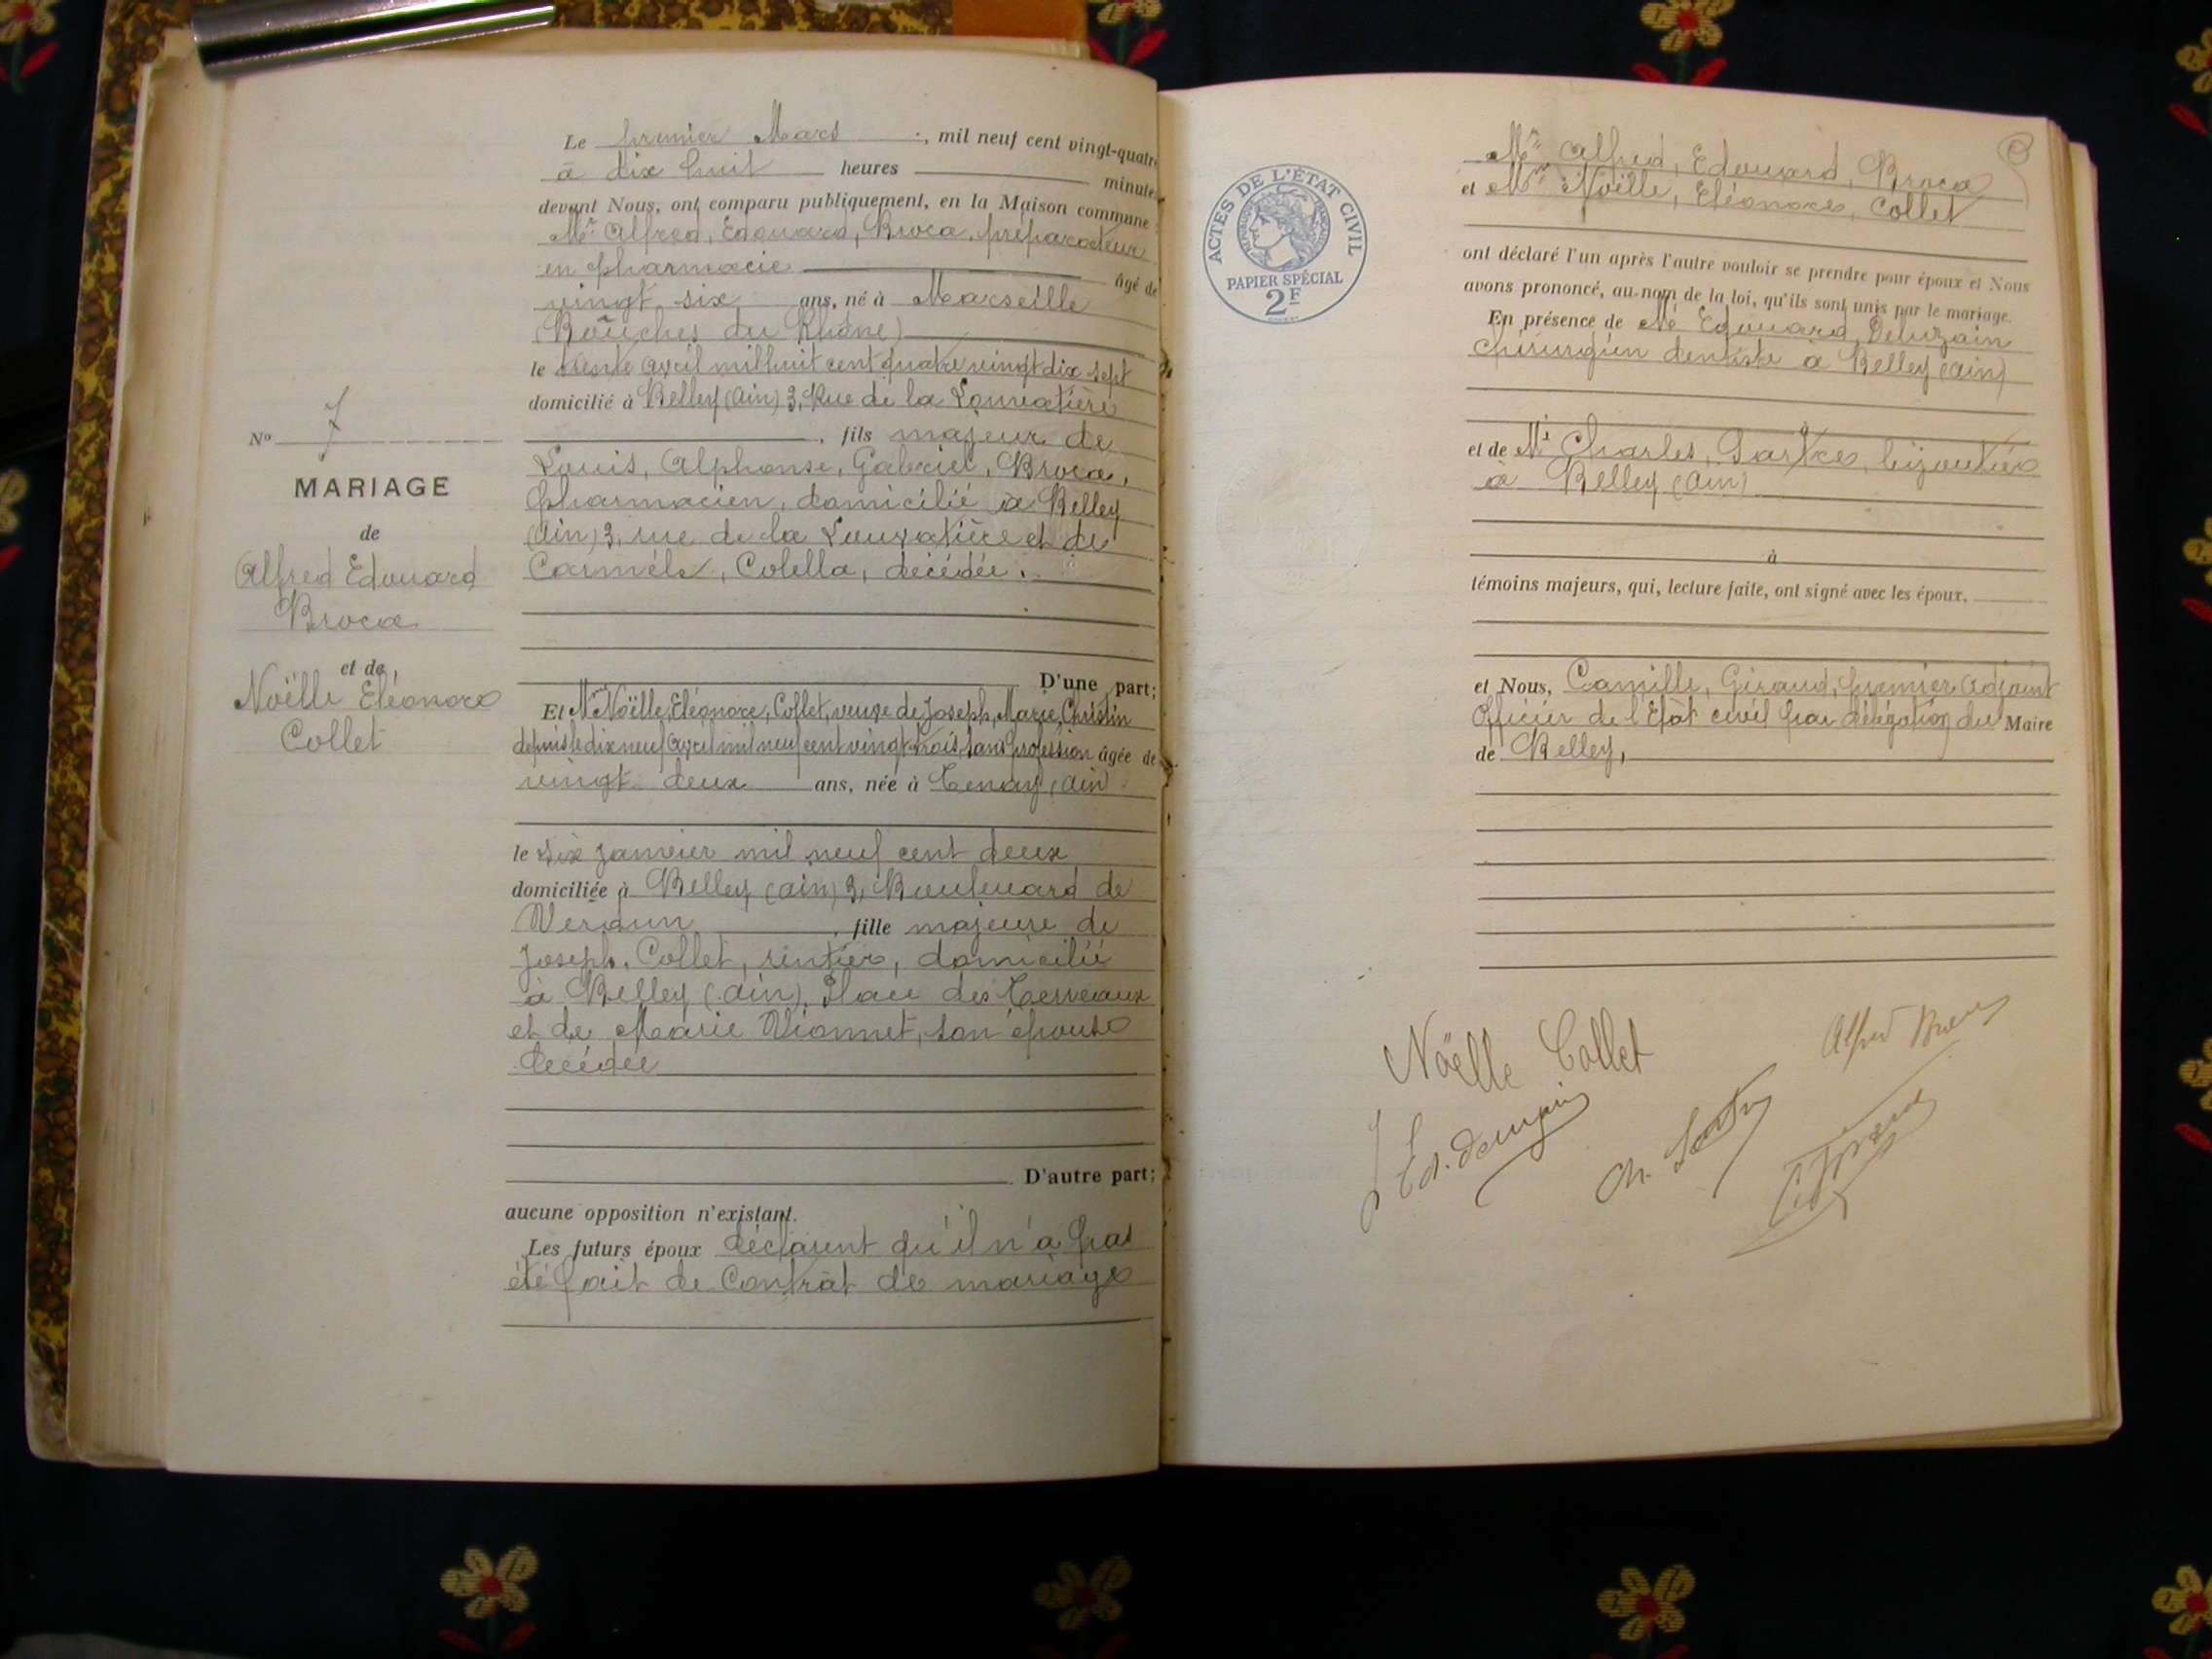 Le premier Mars, mil neuf cent vingt-quatre
à dix huit heures minutes
devant Nous, ont comparu publiquement, en la Maison commune :
Mr Alfred, Edouard, Broca, préparateur
en pharmacie âgé de
vingt six ans, né à Marseille
(Boûches du Rhône)
le trente avril mil huit cent quatre vingt dix sept
domicilié à Belley (Ain) 3, Rue de la Louvatière
, fils majeur de
Louis, Alphonse, Gabriel, Broca,
pharmacien, domicilié à Belley
(Ain) 3, rue de la Louvatière et de
Carméla, Colella, décédée.
D'une part;
Nº 7
MARIAGE
de
Alfred Edouard
Broca
et de
Noëlle Eléonore
Collet
Et Mme Noëlle, Eléonore, Collet, veuve de Joseph, Marie, Christin
depuis le dix neuf Avril mil neuf cent vingt trois, sans profession âgée de
vingt deux ans, née à Tenay (Ain)
le six janvier mil neuf cent deux
domiciliée à Belley (Ain) 3, Boulevard de
Verdun, fille majeure de
Joseph, Collet, rentier, domicilié
à Belley (Ain), Place des Terreaux
et de Marie Vionnet, son épouse
décédée
D'autre part;
aucune opposition n'existant.
Les futurs époux déclarent qu'il n'a pas
été fait de Contrat de mariage
ACTES DE L'ÉTAT CIVIL
RÉPUBLIQUE FRANÇAISE
PAPIER SPÉCIAL
2F
Mr Alfred, Edouard, Broca
et Mme Noëlle, Eléonore, Collet
ont déclaré l'un après l'autre vouloir se prendre pour époux et Nous
avons prononcé, au nom de la loi, qu'ils sont unis par le mariage.
En présence de Mr Edouard
chirurgien dentiste à Belley (Ain)
et de Mr Charles, bijoutier
à Belley (Ain)
à
témoins majeurs, qui, lecture faite, ont signé avec les époux,
et Nous, Camille, Giraud, premier Adjoint
Officier de l'Etat civil par délégation du Maire
de Belley,
Noëlle Collet
Alfred Broca
Ed.
Ch.